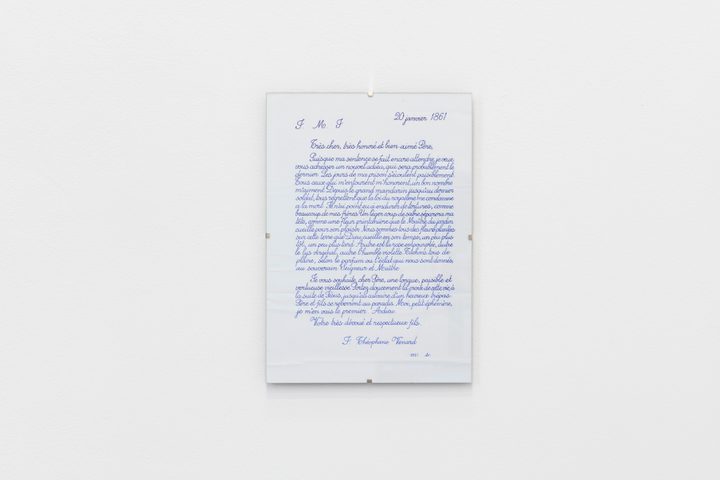 20 janvier 1861
J. M. J.
Très cher, très honoré et bien-aimé Père,
Puisque ma sentence se fait encore attendre, je veux
vous adresser un nouvel adieu, qui sera probablement le
dernier. Les jours de ma prison s'écoulent paisiblement.
Tous ceux qui m'entourent m'honorent, un bon nombre
m'aiment. Depuis le grand mandarin jusqu'au dernier
soldat, tous regrettent que la loi du royaume me condamne
à la mort. Je n'ai point eu à endurer de tortures, comme
beaucoup de mes frères. Un léger coup de sabre séparera ma
tête, comme une fleur printanière que le Maître du jardin
cueille pour son plaisir. Nous sommes tous des fleurs plantées
sur cette terre que Dieu cueille en son temps, un peu plus
tôt, un peu plus tard. Autre est la rose empourprée, autre
le lys virginal, autre l'humble violette. Tâchons tous de
plaire, selon le parfum ou l'éclat qui nous sont donnés,
au souverain Seigneur et Maître.
Je vous souhaite, cher Père, une longue, paisible et
vertueuse vieillesse. Portez doucement la croix de cette vie, à
la suite de Jésus, jusqu'au calvaire d'un heureux trépas.
Père et fils se reverront au paradis. Moi, petit éphémère,
je m'en vais le premier. Adieu.
Votre très dévoué et respectueux fils.
J. Théophane Vénard